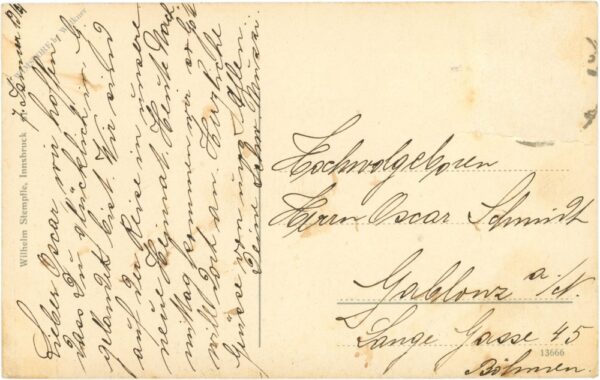 7. Jänner 1914
Lieber Oscar wir hoffen
dass Du glücklich in G.
gelandet bist. Wir sind
auf der Reise in unsere
neue Heimat. Heute Nach-
mittag kommen wir
dort an. Herzliche
Grüsse von uns Allen
Deine
Hochwolgeboren
Herrn Oscar Schmidt
Gablonz a./N.
Lange Gasse 45
Böhmen.
Wilhelm Stempfle, Innsbruck
13666